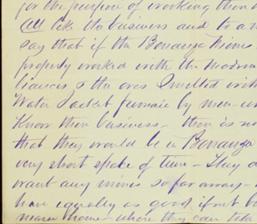 for the purpose of working them
All like the business and to a
say that if the Bonanza Mines
properly worked with the modern
& the ores Smelted with
Water Jacket furnace by men who
Know their business - there is no
that they would be a Bonanza
very short space of time - They do
want any mines so far away - 
have equally as good, if not b
nearer home - where they can take